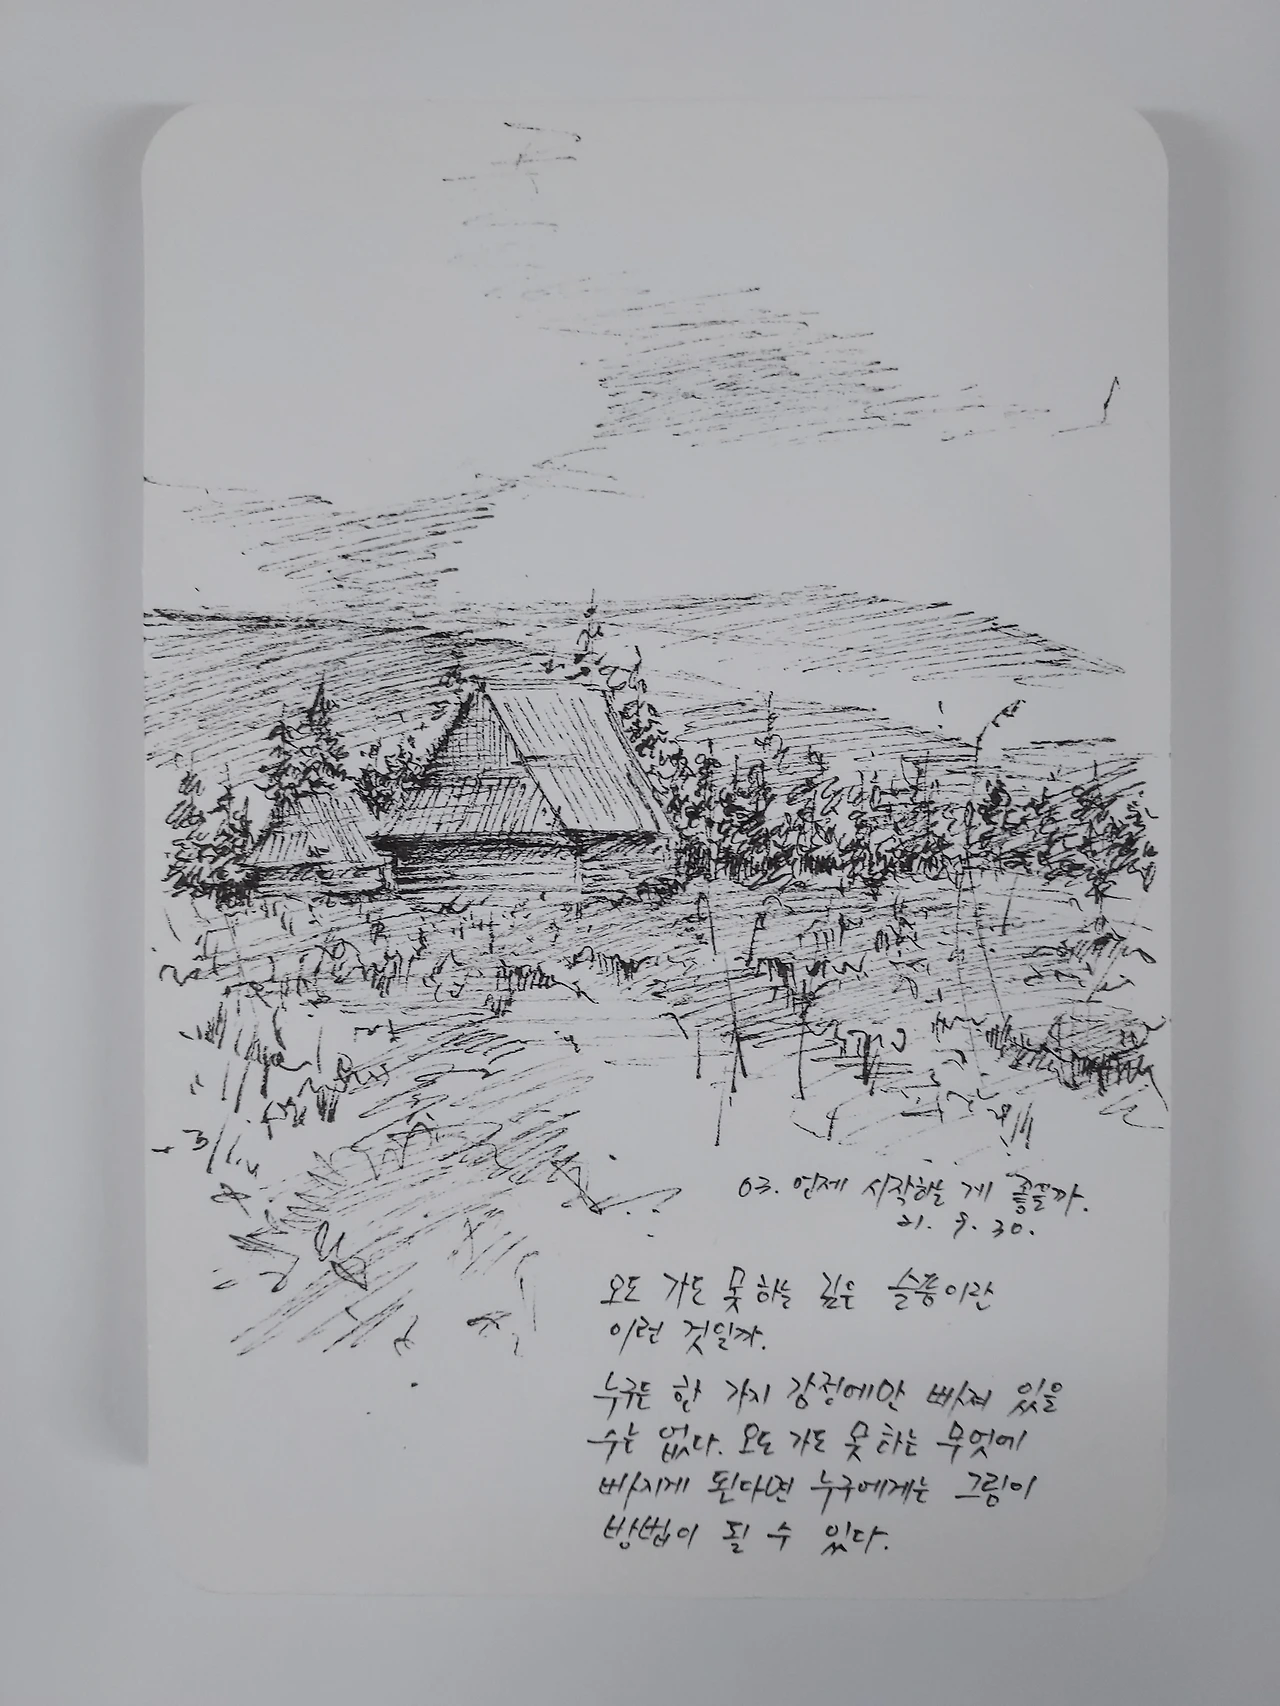 03. 언제 시작하는 게 좋을까.
21. 9. 30.
오도 가도 못하는 깊은 슬픔이란
이런 것일까.
누구든 한 가지 감정에만 빠져 있을
수는 없다. 오도 가도 못하는 무엇에
빠지게 된다면 누구에게는 그림이
방법이 될 수 있다.